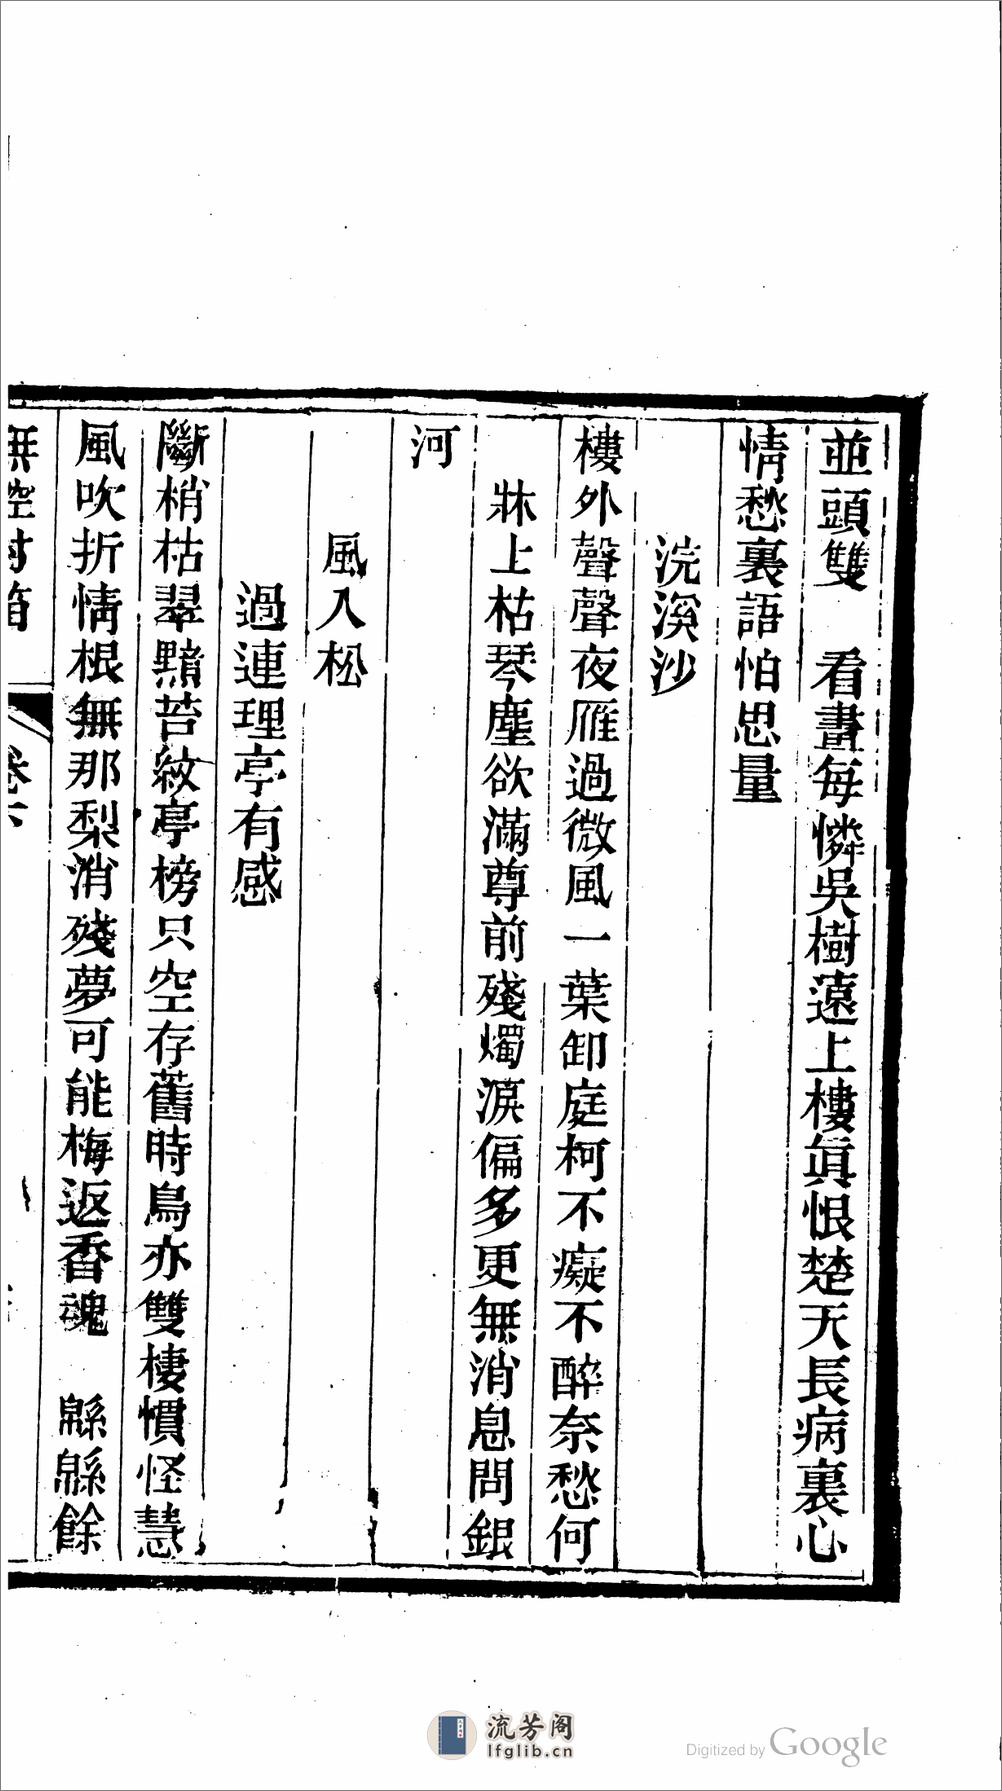 並頭雙　看畫每憐吳樹遠上樓眞恨楚天長病裏心
情愁裏語怕思量
浣溪沙
樓外聲聲夜雁過微風一葉卸庭柯不癡不醉奈愁何
牀上枯琴塵欲滿尊前殘燭淚偏多更無消息問銀
河
風入松
過連理亭有感
斷梢枯翠黯苔紋亭榜只空存舊時鳥亦雙棲慣怪慧
風吹折情根無那梨消殘夢可能梅返香魂　緜緜餘
卷下
流芳阁
lfglib.cn
Digitized by Google